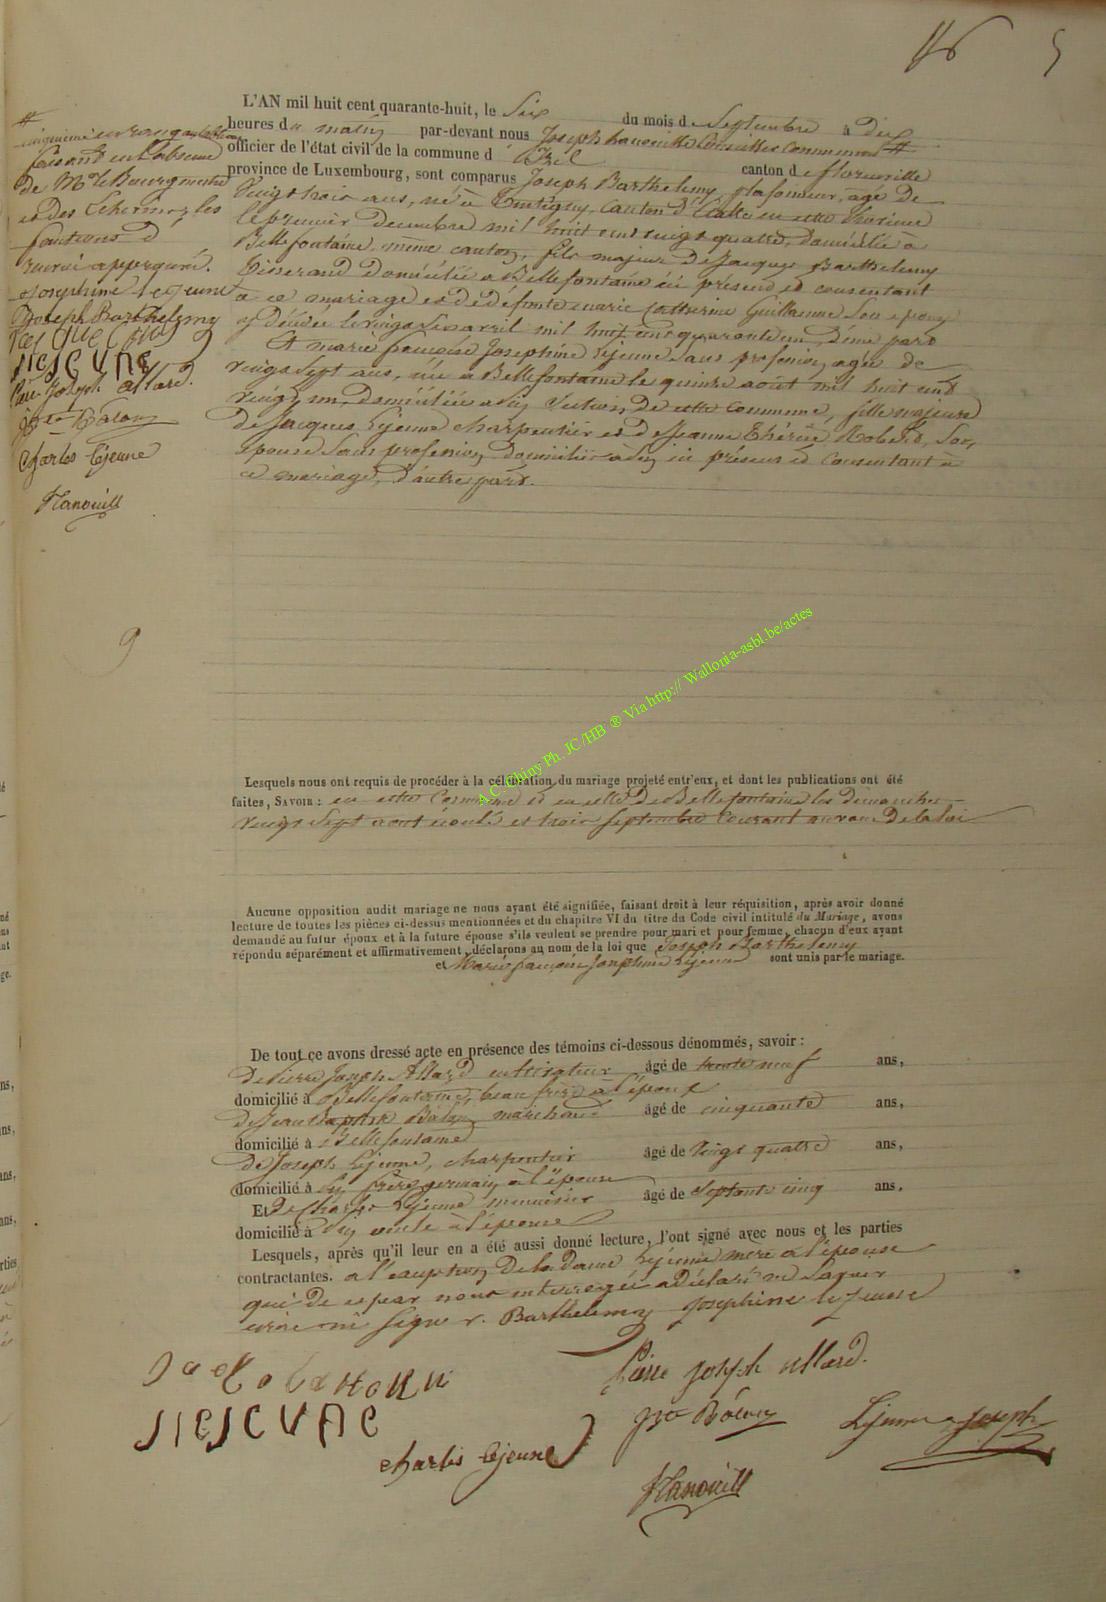 5
L'AN mil huit cent quarante-huit, le Six du mois d e Septembre à dix
heures d u matin par-devant nous Joseph hanouille Conseiller Communal #
officier de l'état civil de la commune d' Izel canton d e florenville
province de Luxembourg, sont comparus Joseph Barthelemy, plafoneur, agé de
Vingt trois ans, né à Tintigny, Canton d'Etalle en cette province
le premier decembre mil huit cent vingt quatre, domicilié à
Bellefontaine, même canton, fils majeur de Jacques Barthelemy
Tisserand domicilié a Bellefontaine ici présend et consentant
a ce mariage et de défunte marie Catherine Guillaume Son epouse
y décédée le vingt six avril mil huit cent quarante un, d'une part
Et marie françoise Josephine Lejeune Sans profession, agée de
vingt Sept ans, née à Bellefontaine le quinze août mil huit cent
vingt un, domiciliée à Section de cette commune, fille majeure
de Jacques Lejeune charpentier et de Jeanne Thérèse Robert, Son
épouse Sans profession domiciliés à ici présens et consentant à
ce mariage, d'autre part.
#
cinquième en rang au tableau
faisant en l'absence
de Mr le Bourgmestre
et des Echevins, les
fonctions d
renvoi approuvé.
Josephine Lejeune
Joseph Barthelemy
LEJEUNE
Pierre Joseph allard.
Charles Lejeune
Hanouille
9
Lesquels nous ont requis de procéder à la célébration du mariage projeté entr'eux, et dont les publications ont été
faites, SAVOIR : en cette Commune et en celle de Bellefontaine les dimanches
vingt Sept aout écoulé et trois Septembre courant au vœu de la loi
Aucune opposition audit mariage ne nous ayant été signifiée, faisant droit à leur réquisition, après avoir donné
lecture de toutes les pièces ci-dessus mentionnées et du chapitre VI du titre du Code civil intitulé du Mariage, avons
demandé au futur époux et à la future épouse s'ils veulent se prendre pour mari et pour femme, chacun d'eux ayant
répondu séparément et affirmativement, déclarons au nom de la loi que Joseph Barthelemy
et Marie françoise Josephine Lejeune sont unis par le mariage.
De tout ce avons dressé acte en présence des témoins ci-dessous dénommés, savoir :
de Pierre Joseph Allard cultivateur âgé de trente neuf ans,
domicilié à Bellefontaine, beau frère à l'époux
de Jean Baptiste marchand âgé de cinquante ans,
domicilié à Bellefontaine
de Joseph Lejeune, charpentier âgé de Vingt quatre ans,
domicilié à frère germain à l'épouse
Et de Charles Lejeune menuisier âgé de Septante cinq ans,
domicilié à oncle à l'épouse
Lesquels, après qu'il leur en a été aussi donné lecture, l'ont signé avec nous et les parties
contractantes. a l'exception de la Dame Lejeune mère à l'épouse
qui de ce par nous interrogée a déclaré ne Savoir
ecrire ni Signer. Barthelemy Josephine lejeune
Pierre Joseph allard.
LEJEUNE
Lejeune Joseph
charles lejeune
Hanouille
A.C. Chiny Ph. JC/HB ® Via http:// Wallonia-asbl.be/actes